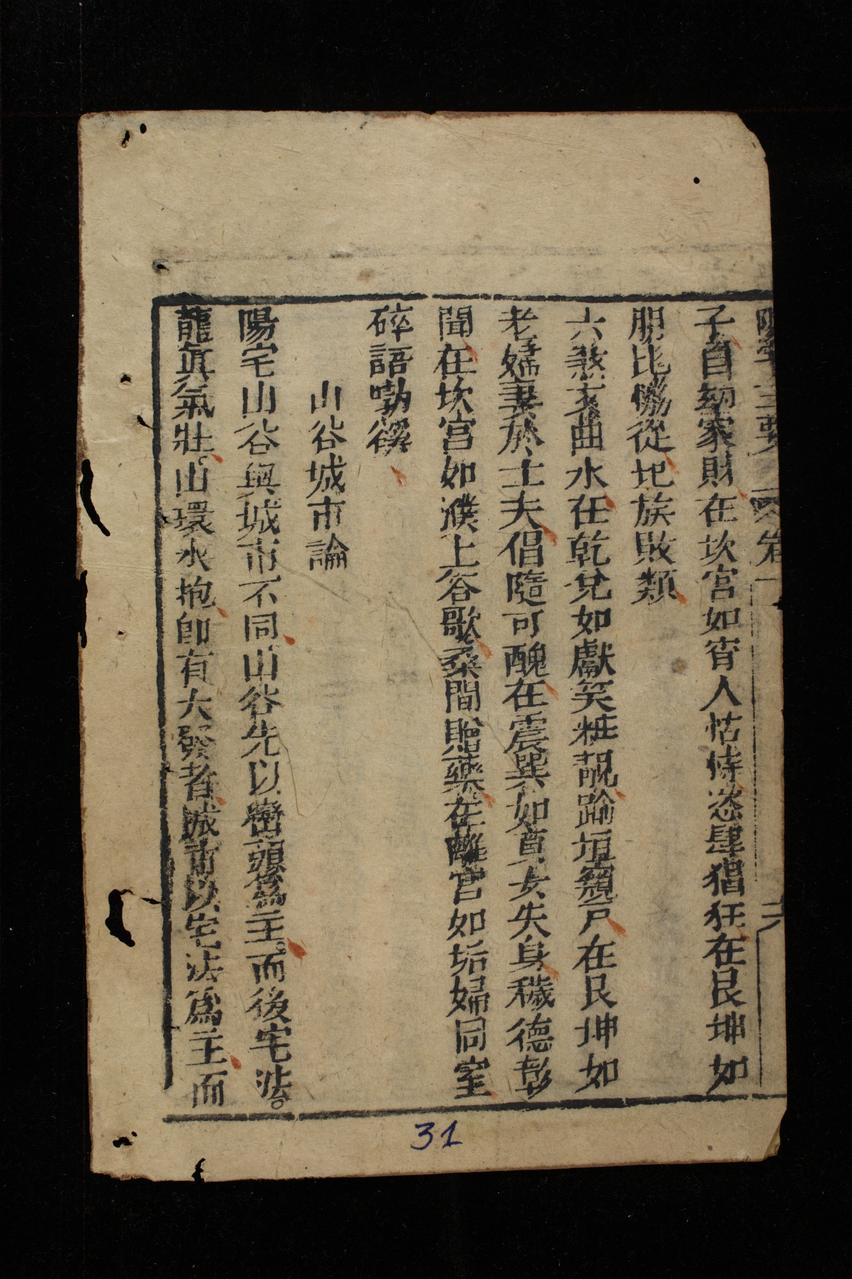 陽宅三要 卷一 六
子自刎家財在坎宮如宵人怙恃恣肆猖狂在艮坤如
朋比慟從圯族敗類
六煞文曲水在乾兌如獻笑粧靚踰垣窺戶在艮坤如
老嫗妻於士夫倡隨可醜在震巽如貞女失身穢德彰
聞在坎宮如濮上答歌桑間贈藥在離宮如垢婦同室
碎語勃谿
山谷城市論
陽宅山谷與城市不同山谷先以巒頭為主而後宅法。
龍眞氣壯山環水抱卽有大發者城市以宅法為主而
31